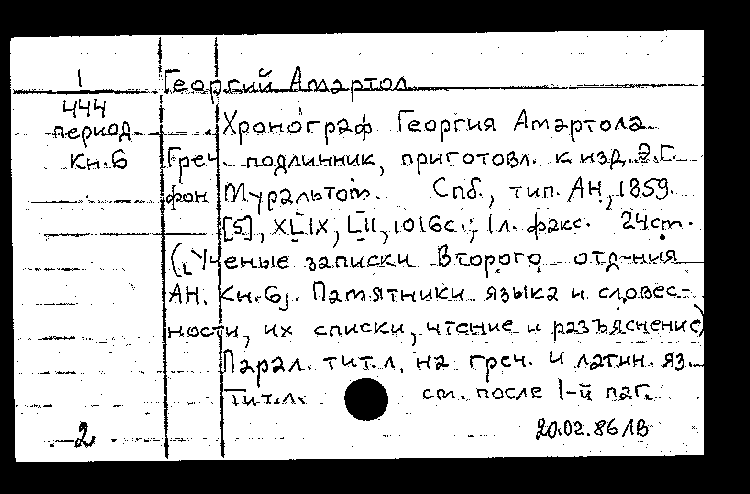 1
Георгий Амартол
444
период
кн.6
Хронограф Георгия Амартола
Греч. подлинник, приготовл. к изд. Э.Г.
фон Муральтом. Спб., тип. АН, 1859.
[5], XLIX, LII, 1016с.; 1л. факс. 24см.
([Ученые записки Второго отд-ния
АН. Кн.6]. Памятники языка и словес-
ности, их списки, чтение и разъяснение)
Парал. титл. на греч. и латин. яз.
Титл. см. после 1-й паг.
2
20.02.86 ЛВ